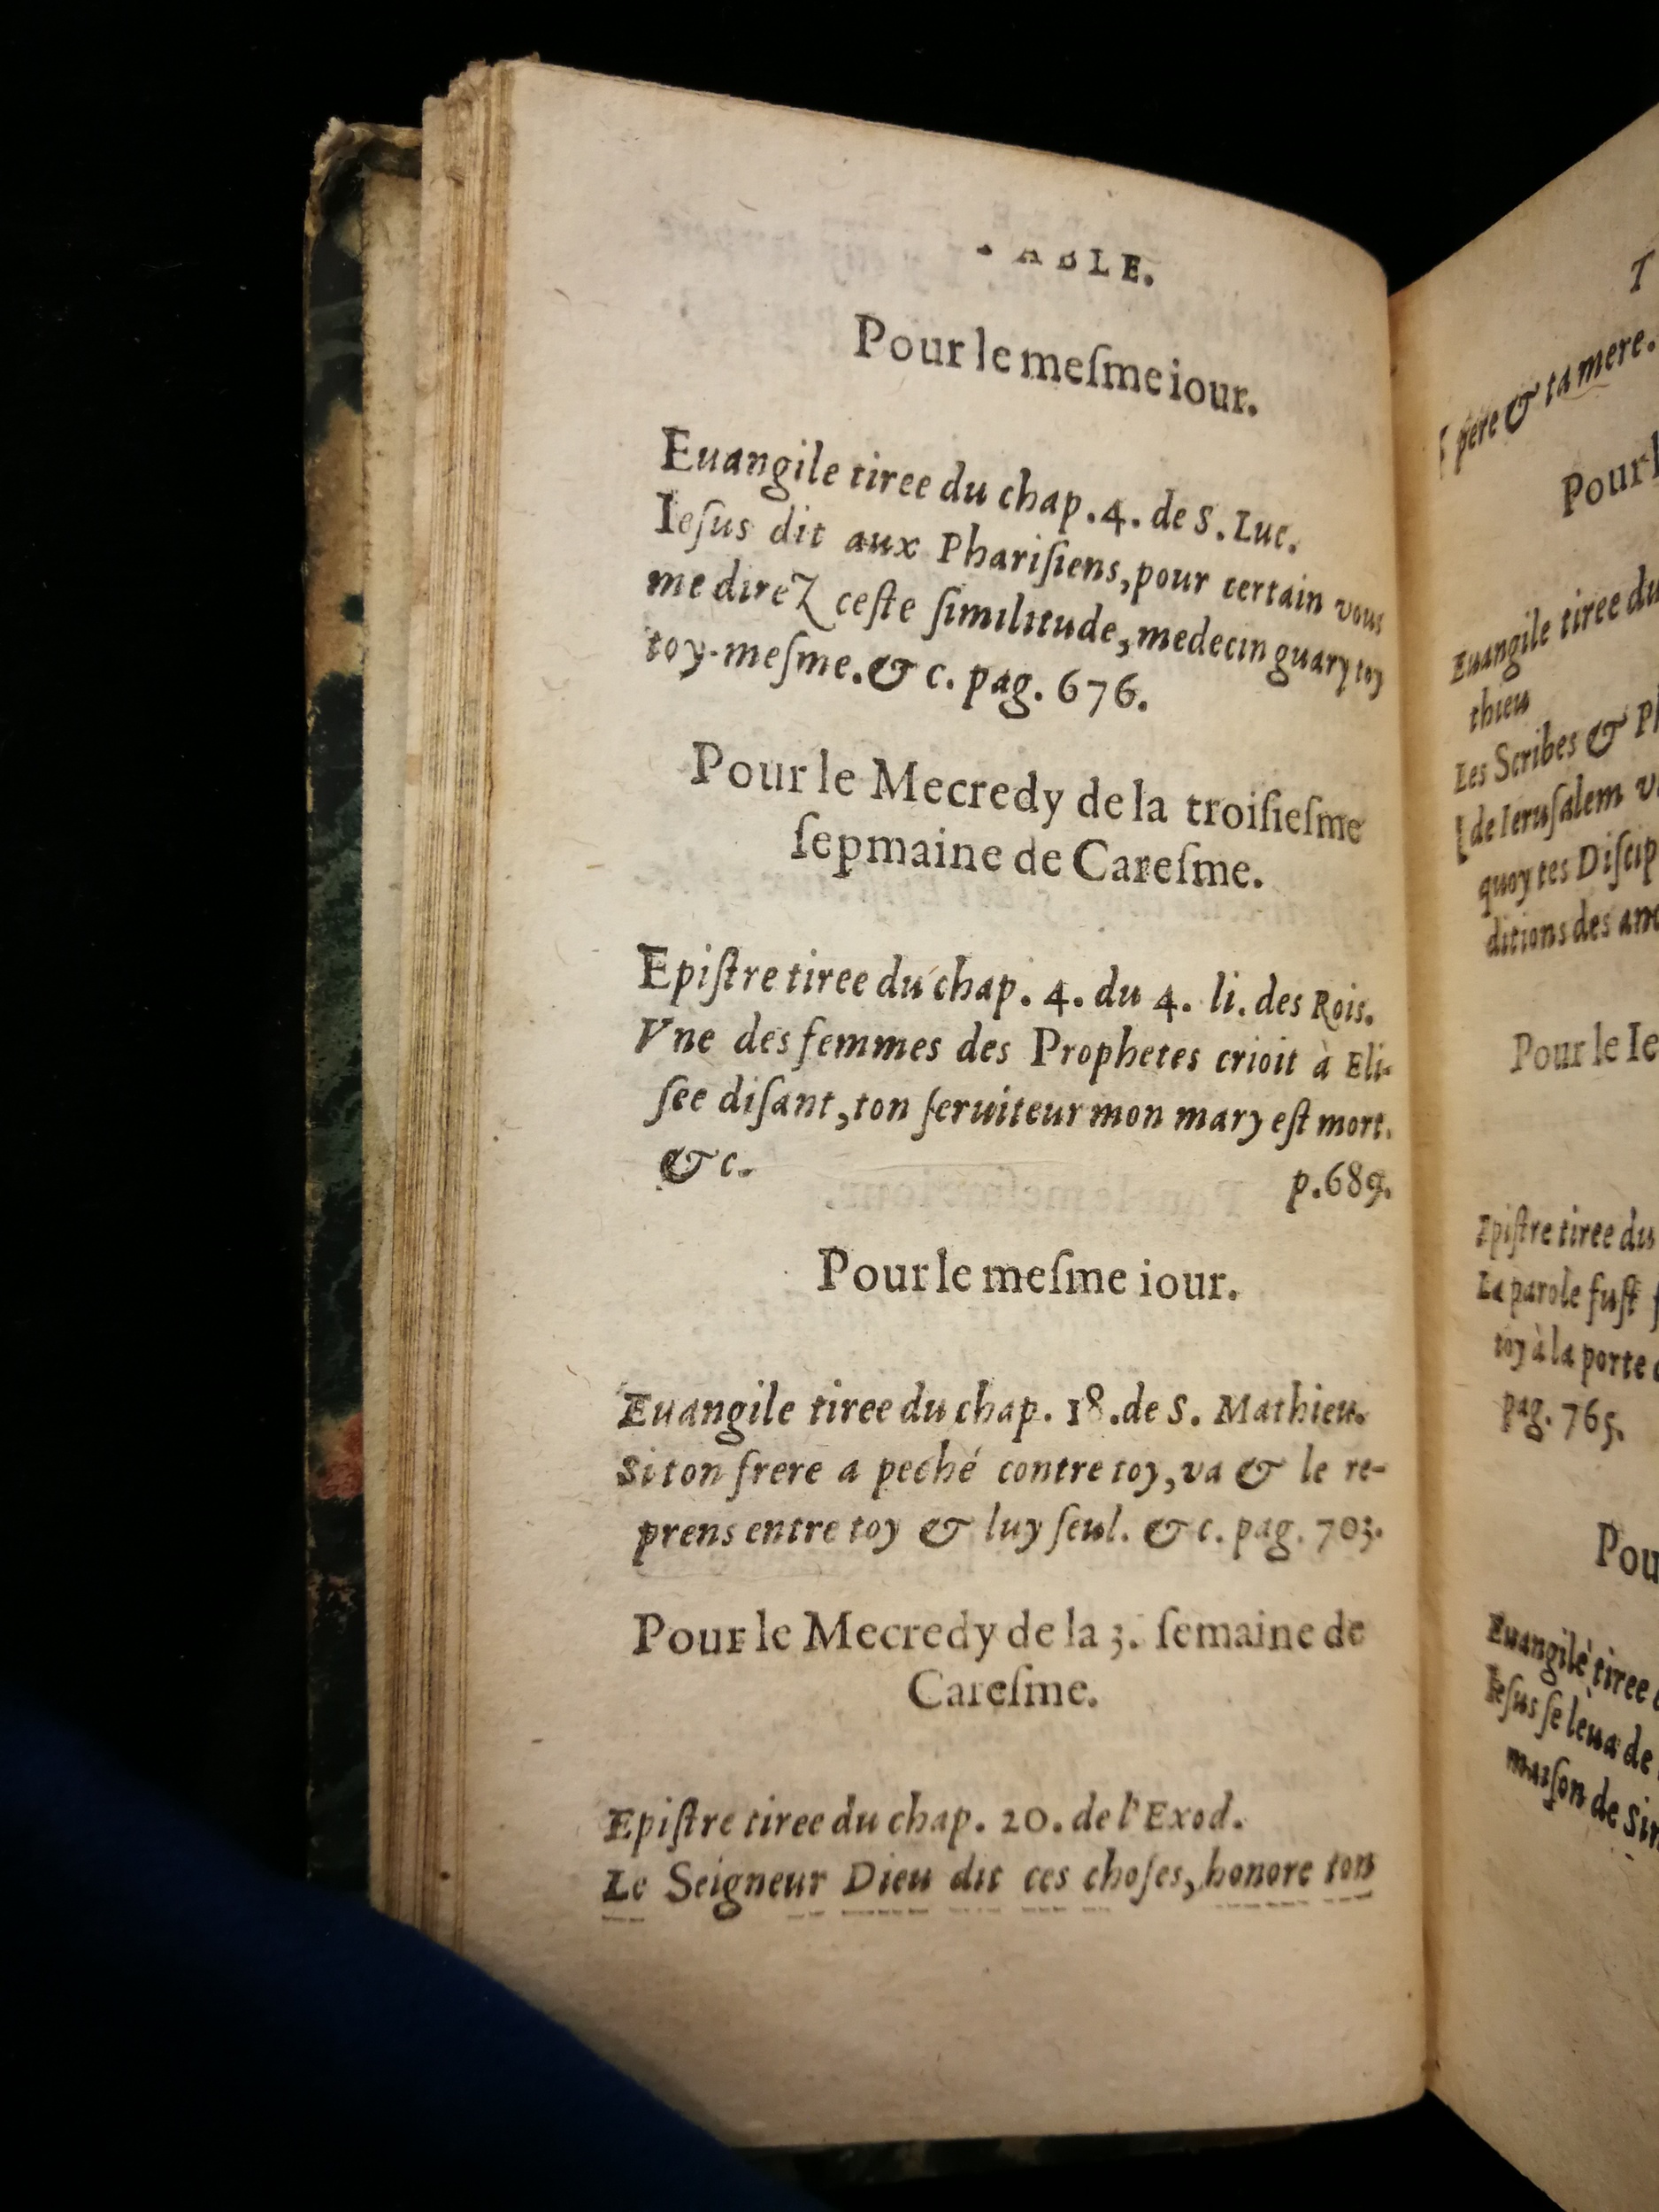 TABLE.
Pour le meſme iour.
Euangile tiree du chap. 4. de S. Luc.
Ieſus dit aux Phariſiens, pour certain vous
me direz ceſte ſimilitude, medecin guary toy
toy-meſme. & c. pag. 676.
Pour le Mecredy de la troiſieſme
ſepmaine de Careſme.
Epiſtre tiree du chap. 4. du 4. li. des Rois.
Vne des femmes des Prophetes crioit à Eli-
ſee diſant, ton ſeruiteur mon mary eſt mort.
& c. p. 689.
Pour le meſme iour.
Euangile tiree du chap. 18. de S. Mathieu.
Si ton frere a peché contre toy, va & le re-
prens entre toy & luy ſeul. & c. pag. 703.
Pour le Mecredy de la 3. ſemaine de
Careſme.
Epiſtre tiree du chap. 20. de l'Exod.
Le Seigneur Dieu dit ces choſes, honore ton
T
pere & ta mere.
Pour l
Euangile tiree du
thieu
Les Scribes & Ph
de Ieruſalem v
quoy tes Diſcip
ditions des anc
Pour le Ie
Epiſtre tiree du
La parole fuſt ſ
toy à la porte
pag. 765.
Pou
Euangile tiree
Ieſus ſe leua de
maiſon de Sim